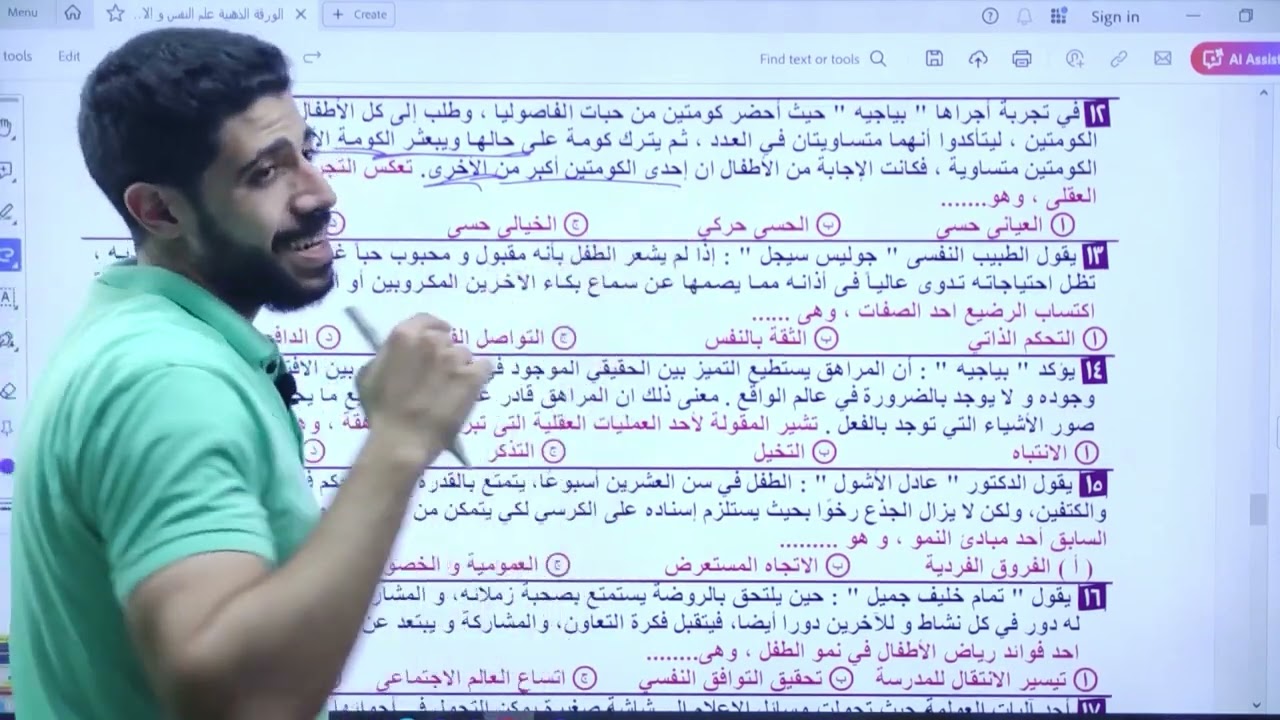 Menu
الورقة الذهبية علم النفس و الا..
Create
Sign in
tools
Edit
Find text or tools
AI Assist
١٢ في تجربة أجراها " بياجيه " حيث أحضر كومتين من حبات الفاصوليا ، وطلب إلى كل الأطفال
الكومتين ، ليتأكدوا أنهما متساويتان في العدد ، ثم يترك كومة على حالها ويبعثر الكومة
الكومتين متساوية ، فكانت الإجابة من الأطفال ان إحدى الكومتين أكبر من الأخرى. تعكس
العقلى ، وهو.......
أ العياني حسى ب الحسى حركي ج الخيالي حسى د
١٣ يقول الطبيب النفسى " جوليس سيجل " : إذا لم يشعر الطفل بأنه مقبول و محبوب حبا
تظل احتياجاته تدوى عالياً فى أذانه مما يصمها عن سماع بكاء الاخرين المكروبين أو
اكتساب الرضيع احد الصفات ، وهى ......
أ التحكم الذاتي ب الثقة بالنفس ج التواصل د
١٤ يؤكد " بياجيه " : أن المراهق يستطيع التميز بين الحقيقي الموجود بين
وجوده و لا يوجد بالضرورة في عالم الواقع . معنى ذلك ان المراهق قادر
صور الأشياء التي توجد بالفعل . تشير المقولة لأحد العمليات العقلية التى
أ الانتباه ب التخيل ج التذكر د
١٥ يقول الدكتور " عادل الأشول " : الطفل في سن العشرين أسبوعًا، يتمتع بالقدرة
والكتفين، ولكن لا يزال الجذع رخوًا بحيث يستلزم إسناده على الكرسي لكي يتمكن من
السابق أحد مبادئ النمو ، و هو .........
( أ ) الفروق الفردية ب الاتجاه المستعرض ج العمومية و
١٦ يقول " تمام خليف جميل " : حين يلتحق بالروضة يستمتع بصحبة زملائه، و
له دور في كل نشاط و للآخرين دورا أيضا، فيتقبل فكرة التعاون، والمشاركة و يبتعد
احد فوائد رياض الأطفال في نمو الطفل ، وهى........
أ تيسير الانتقال للمدرسة ب تحقيق التوافق النفسي ج اتساع العالم الاجتماعي
١٧